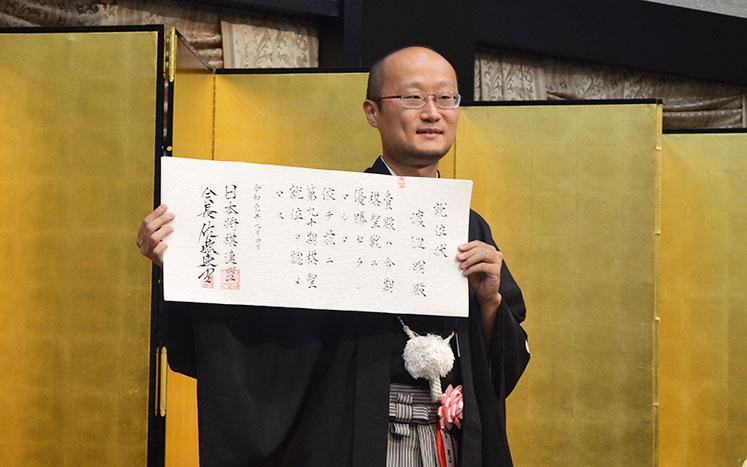 就位状
渡辺明殿
貴殿ハ今期
棋聖戦ニ
優勝セラレ
マシタ
依テ茲ニ
第九十期棋聖
就位ヲ認メ
マス
令和元年九月四日
日本将棋連盟
会長佐藤康光